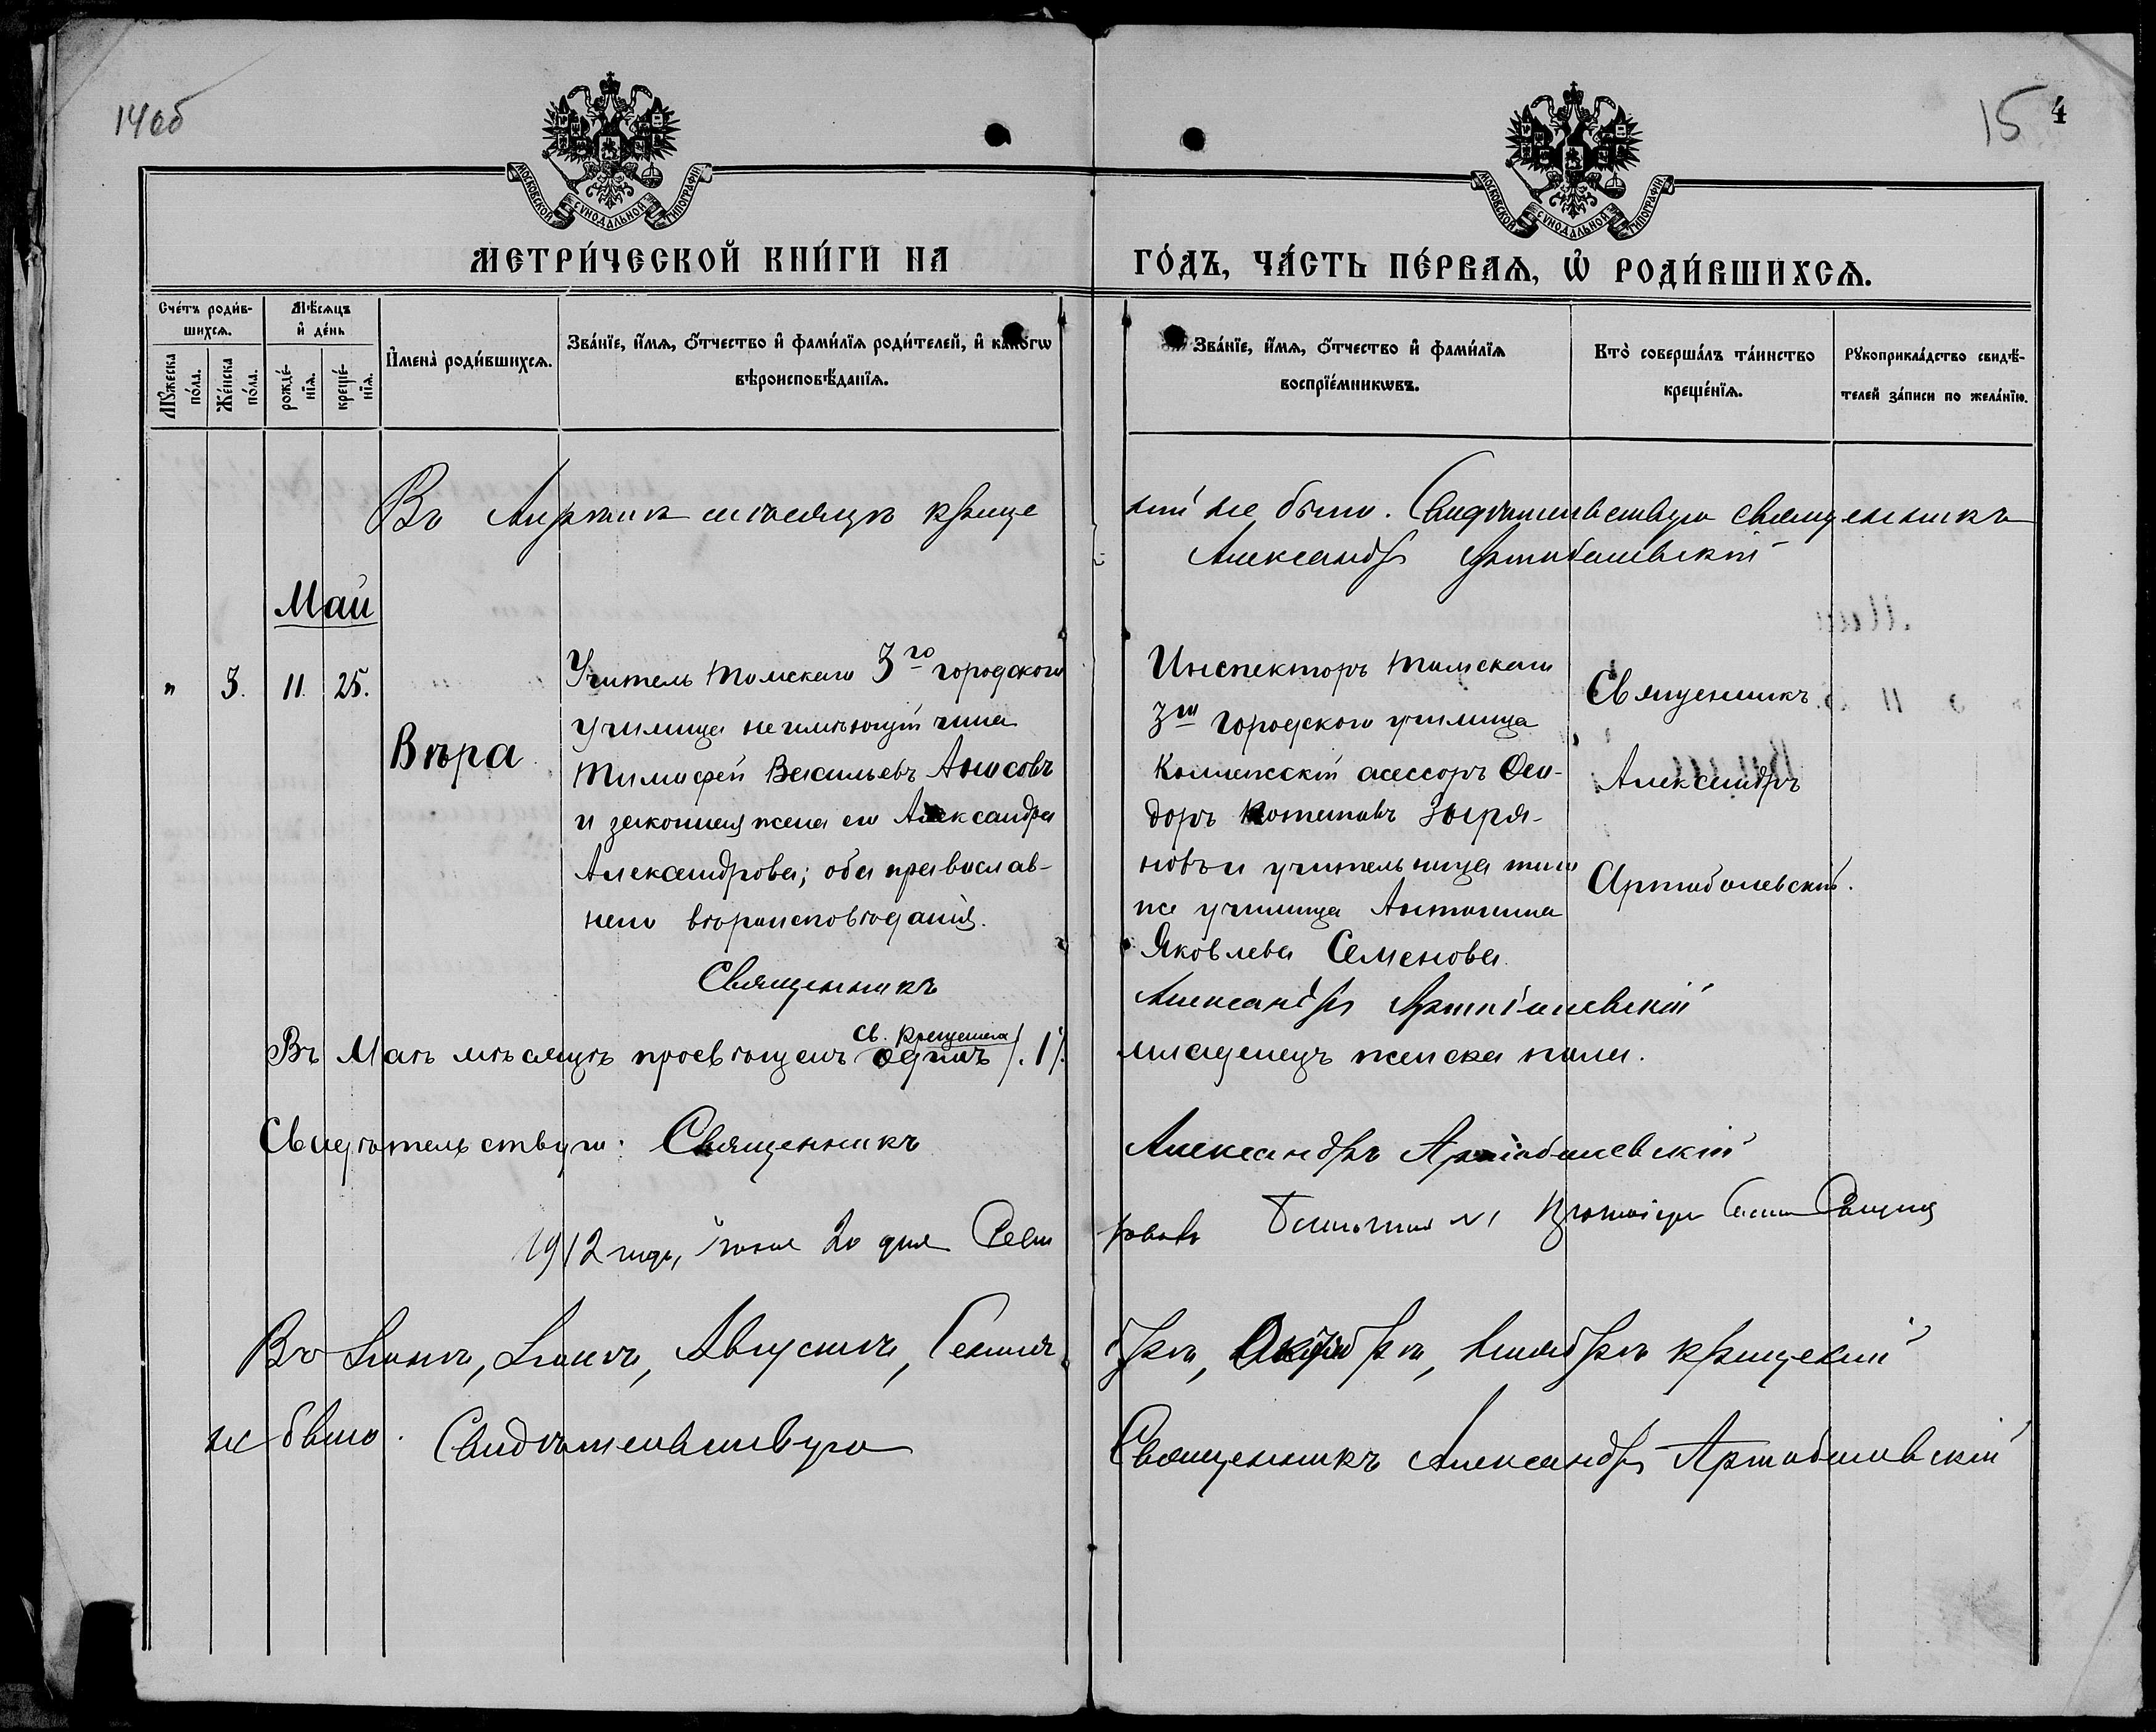 14об
15 4
МОСКОВСКОЙ СУНОДАЛЬНОЙ ТИПОГРАФІИ
МОСКОВСКОЙ СУНОДАЛЬНОЙ ТИПОГРАФІИ
МЕТРИ́ЧЕСКОЙ КНИ́ГИ НА ГО́ДЪ, ЧА́СТЬ ПЕ́РВАѦ, Ѡ҆ РОДИ́ВШИХСѦ.
Сче́тъ роди́в-
шихсѧ.
Мѣ́сѧцъ
и҆ де́нь
Мꙋ́жеска
по́ла.
Же́нска
по́ла.
рожде́-
нїѧ.
креще́-
нїѧ.
И҆мена̀ роди́вшихсѧ.
Зва́нїе, и҆́мѧ, ѻ҆́тчество и҆ фами́лїѧ роди́телей, и҆ како́гѡ
вѣроисповѣ́данїѧ.
Зва́нїе, и҆́мѧ, ѻ҆́тчество и҆ фами́лїѧ
воспрїе́мникѡвъ.
Кто̀ соверша́лъ та́инство
креще́нїѧ.
Рꙋкоприкла́дство свидѣ́-
телей за́писи по жела́нїю.
Въ Апрѣлѣ мѣсяцѣ креще
ній не было. Свидѣтельствую священникъ
Александръ Артоболевскій
Май
" 3. 11. 25.
Вѣра
Учитель Томскаго 3го городского
училища неимѣющій чина
Тимофей Васильевъ Аносовъ
и законная жена его Александра
Александрова; оба православ-
наго вѣроисповѣданія.
Инспекторъ Томскаго
3го городского училища
Коллежскій асессоръ Ѳео-
доръ Зыря-
новъ и учительница того
же училища Антонина
Яковлева Семенова.
Священникъ
Александръ
Артоболевскій.
Священникъ
Александръ Артоболевскій
Въ Маѣ мѣсяцѣ просвѣщенъ св. крещеніемъ одинъ /.1/.
младенецъ женска пола.
Свидѣтельствую: Священникъ
Александръ Артоболевскій
1912 года, Іюня 20 дня
Въ Іюнѣ, Іюлѣ, Августѣ, Сентя
брѣ, Октябрѣ, Ноябрѣ крещеній
не было. Свидѣтельствую
Священникъ Александръ Артоболевскій